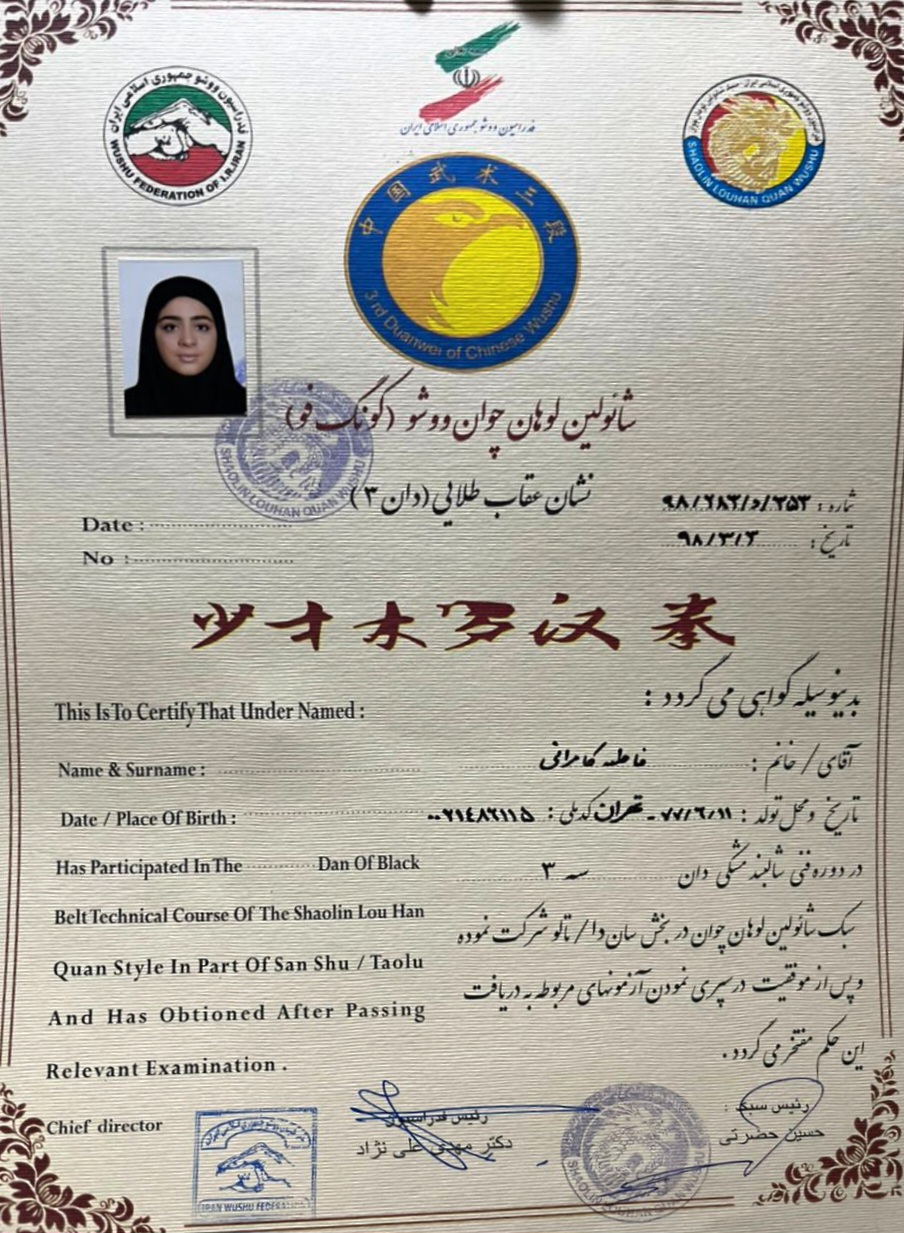 فدراسیون ووشو جمهوری اسلامی ایران
WUSHU FEDERATION OF I.R.IRAN
فدراسیون ووشو جمهوری اسلامی ایران
SHAOLIN LOUHAN QUAN WUSHU
中国武术三段
3 rd Duanwei of Chinese Wushu
شائولین لوهان چوان ووشو (گونگ فو)
SHAOLIN LOUHAN QUAN WUSHU
نشان عقاب طلایی (دان ۳)
شماره :
تاریخ : ۹۸/۳/۲
Date :
No :
少林罗汉拳
بدینوسیله گواهی می گردد :
This Is To Certify That Under Named :
آقای / خانم : فاطمه کامرانی
Name & Surname :
تاریخ و محل تولد : ۷۷/۶/۱۱ - تهران کدملی : ۰۰۲۱۴۸۲۱۱۵
Date / Place Of Birth :
در دوره فنی شالبند مشکی دان سه ۳
Has Participated In The Dan Of Black
سبک شائولین لوهان چوان در بخش سان دا / تالو شرکت نموده
Belt Technical Course Of The Shaolin Lou Han
و پس از موفقیت در سپری نمودن آزمونهای مربوطه به دریافت
Quan Style In Part Of San Shu / Taolu
این حکم مفتخر می گردد .
And Has Obtioned After Passing
Relevant Examination .
Chief director
رئیس فدراسیون
دکتر مهدی علی نژاد
رئیس سبک :
حسین حضرتی
IRAN WUSHU FEDERATION